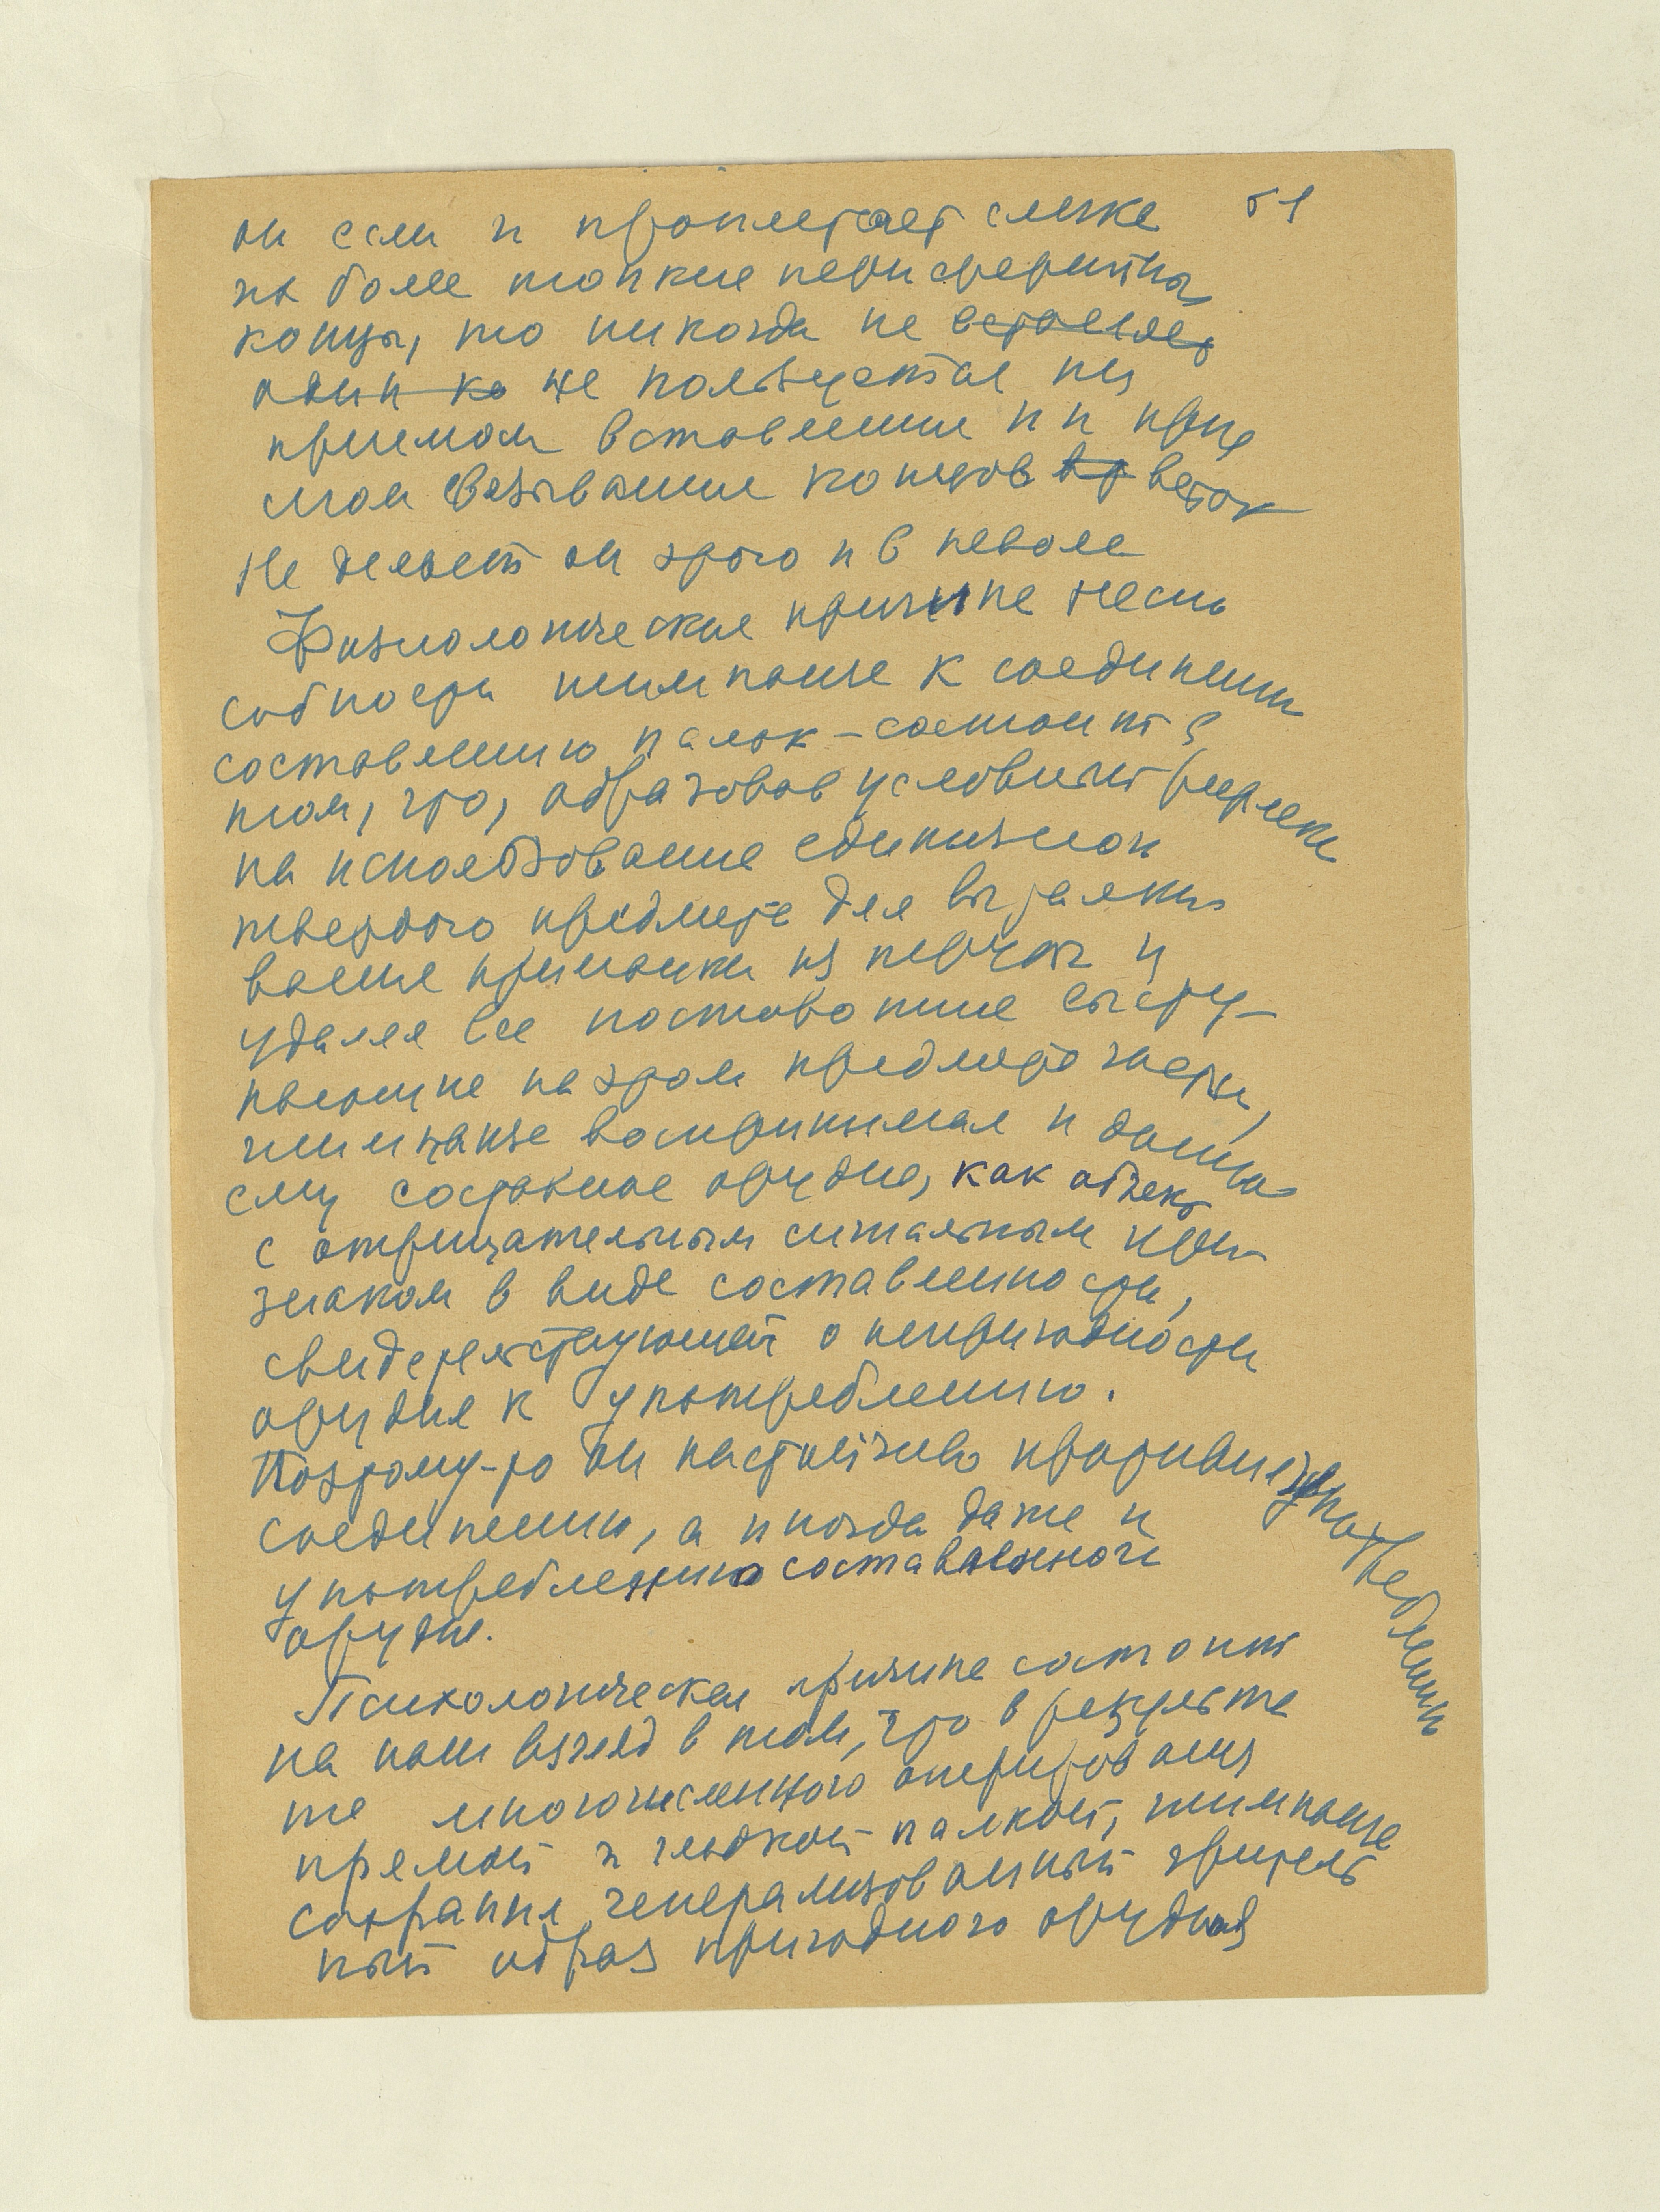 51
он если и проплетает слегка
их более тонкие периферийны
концы, то никогда не вставляет
один ко не пользуется ни
приемом вставления ни прие
мом связывания концов вт веток
Не делает он этого и в неволе
Физиологическая причина неспо
собности шимпанзе к соединению
составлению палок – состоит в
том, что, образовав условный рефлекс
на использование единичном
твердого предмета для выталки
вания приманки из трубки и
удаляя все посторонние высту-
пающие на этом предмете части,
шимпанзе воспринимал и данное
ему составное орудие, как объект
с отрицательным сигнальным при-
знаком в виде составленности,
свидетельствующей о непригодности
орудия к употреблению.
Поэтому-то он настойчиво противился
соединению, а иногда даже и
употреблению составленного
орудия.
употреблению
Психологическая причина состоит
на наш взгляд в том, что в результа
те многочисленного оперирования
прямой и гладкой палкой, шимпанзе
сохранил генерализованный зритель
ный образ пригодного орудия в